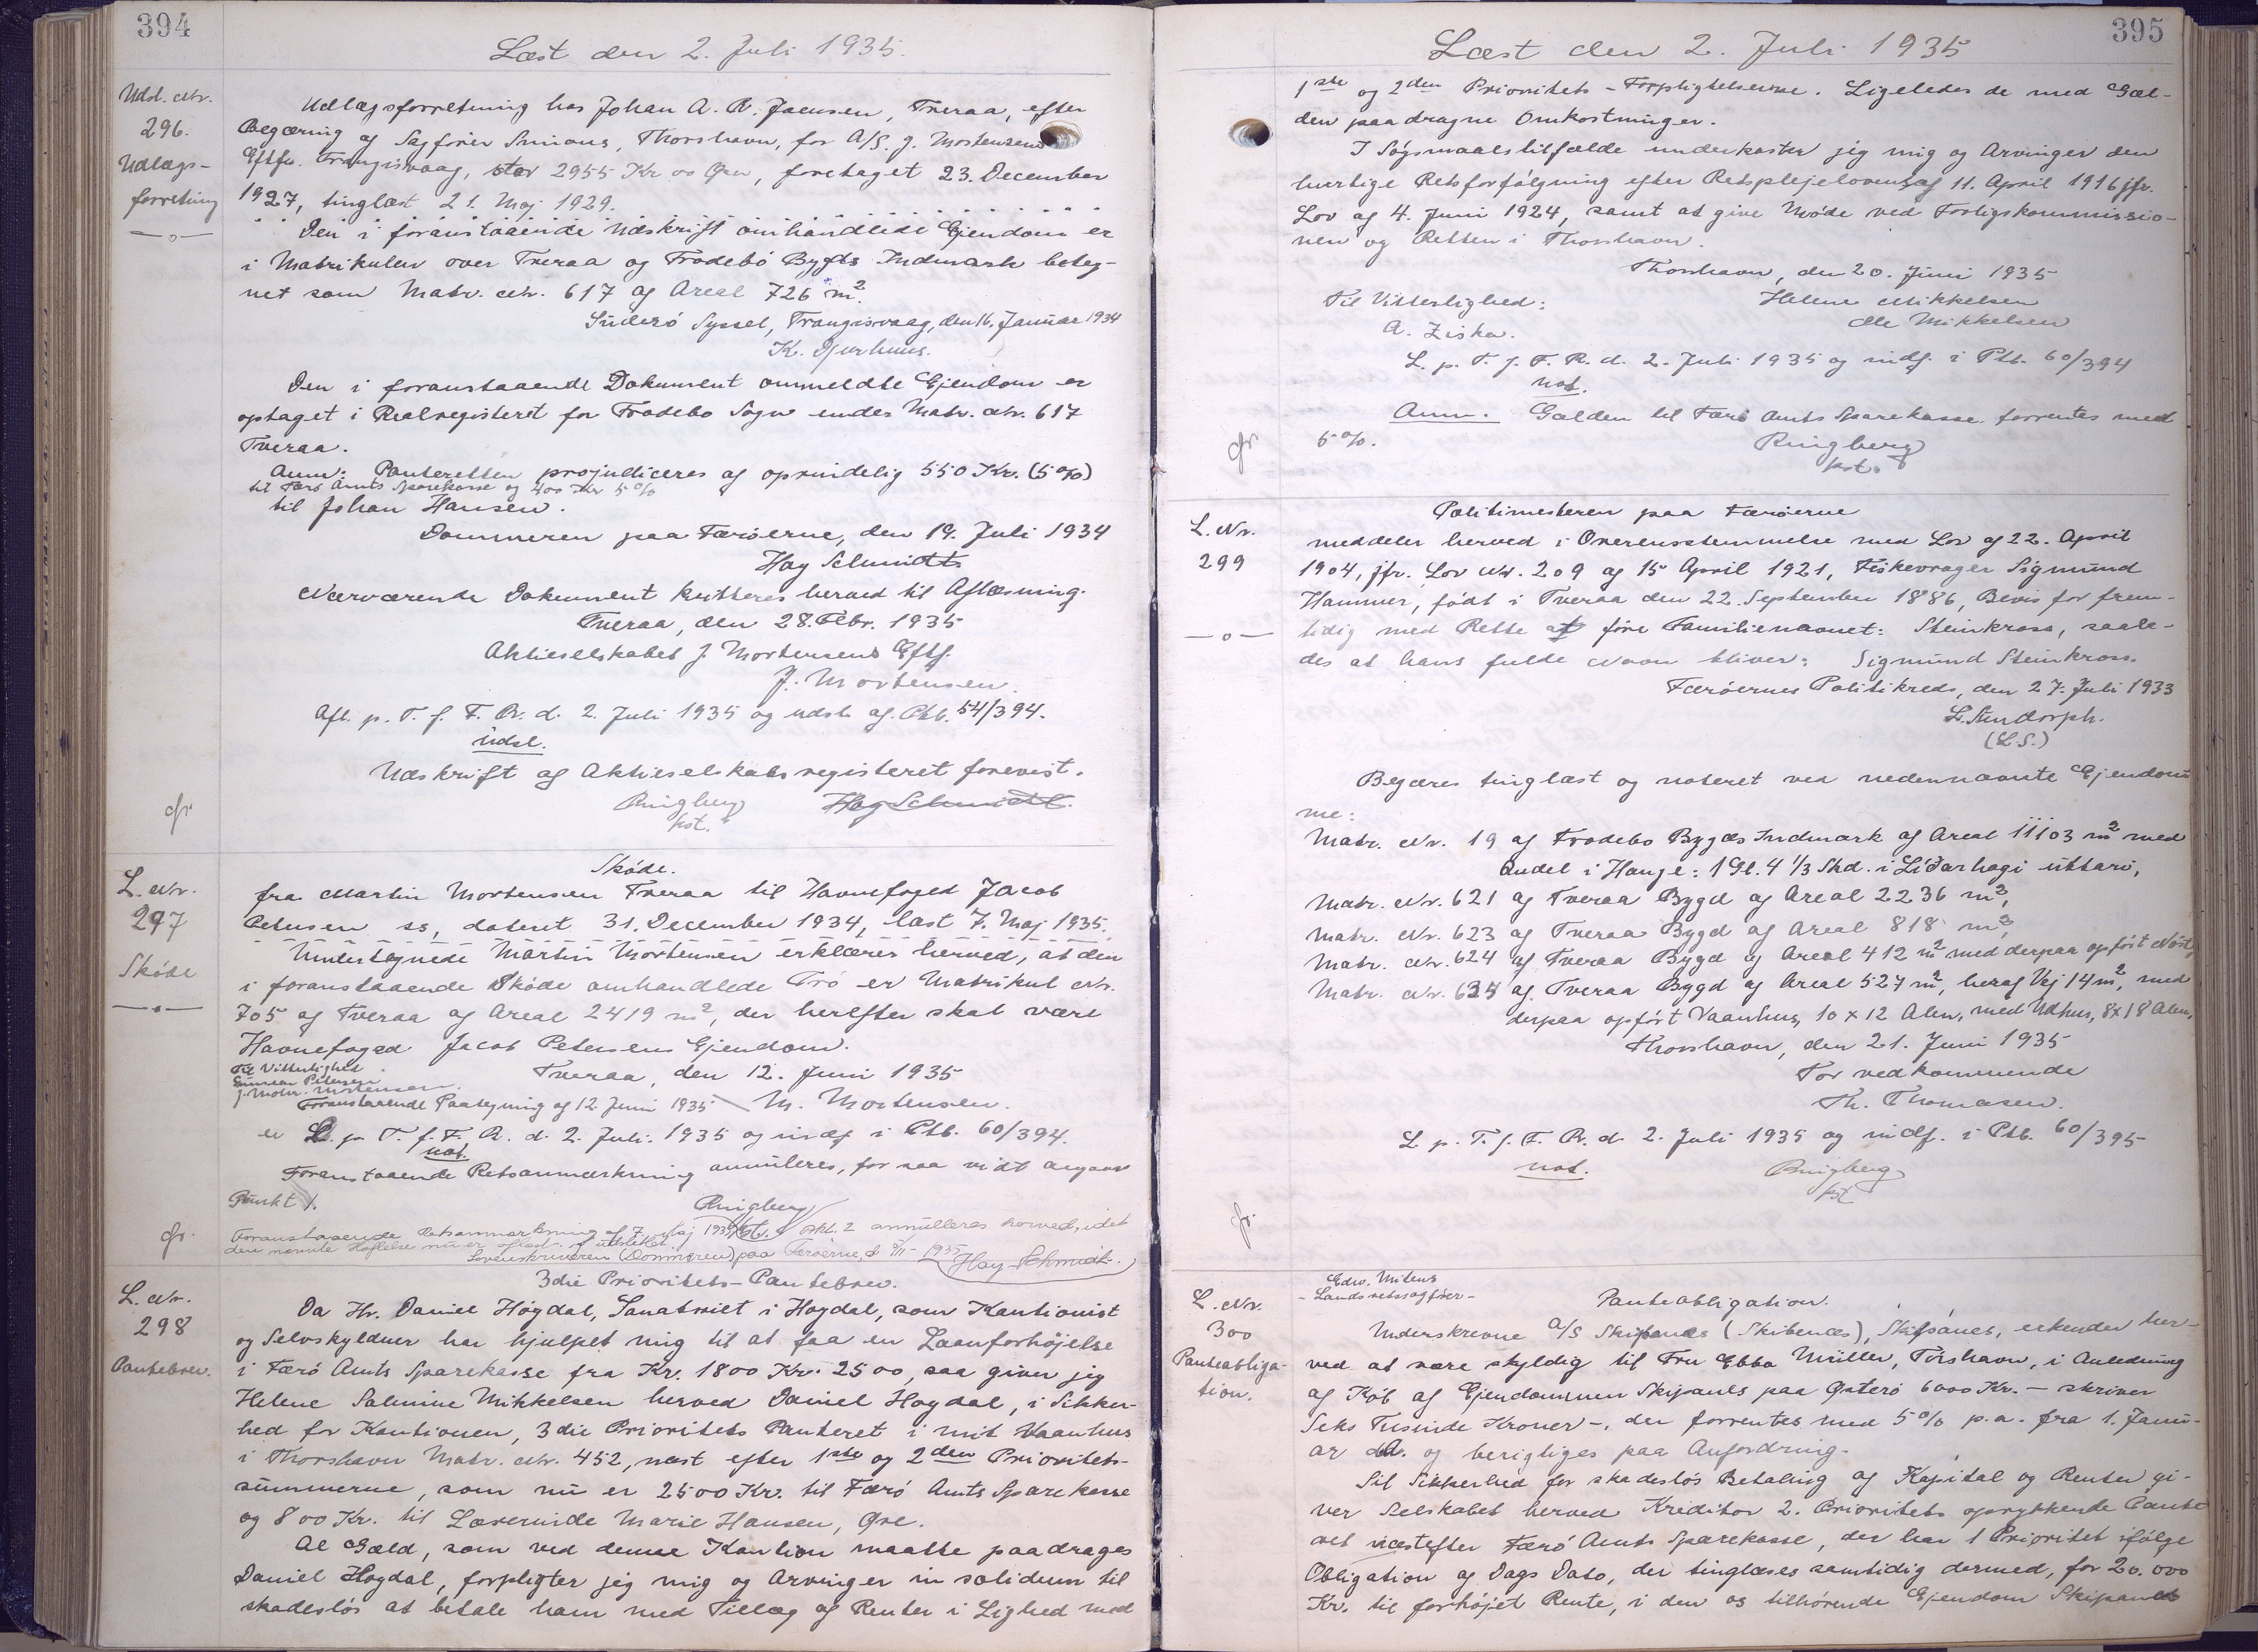 394
Læst den 2. Juli 1935.
Udsl. Nr.
296.
Udlægs-
forretning
Udlægsforretning hos Johan A. R. Joensen, Tveraa, efter
Begæring af Sagfører Simons, Thorshavn, for A/S. J. Mortensens
Eftflg. Trangisvaag, stor 2955 Kr 00 Øre, foretaget 23. December
1927, tinglæst 21. Maj 1929.
Den i foranstaaende Udskrift omhandlede Ejendom er
i Matrikulen over Tveraa og Frodebö Bygds Indmark beteg-
net som Matr. Nr. 617 af Areal 726 m².
Süderö Syssel, Trangisvaag, den 16. Januar 1934
K. Djurhuus.
Den i foranstaaende Dokument ommeldte Ejendom er
optaget i Realregisteret for Frodebo Sogn under Matr. Nr. 617
Tveraa.
Anm: Panteretten præjudiceres af oprindelig 550 Kr. (5%)
til Færö Amts Sparekasse og 400 Kr 5%
til Johan Hansen.
Dommeren paa Færöerne, den 19. Juli 1934
Hay Schmidt
Nærværende Dokument kvitteres herved til Aflæsning.
Tveraa, den 28. Febr. 1935
Aktieselskabet J. Mortensens Eftf.
J. Mortensen.
Afl. p. T. f. F. R. d. 2. Juli 1935 og udsl. af. Ptb. 54/394.
Udsl.
Udskrift af Aktieselskabsregisteret forevist.
Ringberg Hay Schmidt.
kst.
gr
L. Nr.
297
Skøde
Sköde.
fra Martin Mortensen Tveraa til Havnefoged Jacob
Petersen ss, dateret 31. December 1934, læst 7. Maj 1935.
Undertegnede Martin Mortensen erklærer herved, at den
i foranstaaende Sköde omhandlede Trö er Matrikul Nr.
705 af Tveraa af Areal 2419 m², der herefter skal være
Havnefoged Jacob Petersens Ejendom.
Til Vitterlighed
Tveraa, den 12. Juni 1935
Petersen
J. Mohr. Mortensen.
M. Mortensen.
Foranstaaende Paategning af 12. Juni 1935
er L. p. T. f. F. R. d. 2. Juli. 1935 og indf i Ptb. 60/394.
not.
Foranstaaende Retsanmærkning annuleres, for saa vidt angaar
Punkt 1.
Ringberg
kst.
gr.
Foranstaaende Retsanmærkning af 7. Maj 1935 pkt. 2 annulleres herved, idet
den nævnte Hæftelse nu er aflæst og udslettet
Sorenskriveren (Dommeren) paa Færöerne, d. 1935
Hay-Schmidt.
L. Nr.
298
Pantebrev.
3die Prioritets-Pantebrev.
Da Hr. Daniel Høgdal, Sanatoriet i Hoydal, som Kautionist
og Selvskyldner har hjulpet mig til at faa en Laanforhöjelse
i Færö Amts Sparekasse fra Kr. 1800 Kr. 2500, saa giver jeg
Helene Salmine Mikkelsen herved Daniel Hogdal, i Sikker-
hed for Kautionen, 3die Prioritets Panteret i mit Vaanhus
i Thorshavn Matr. Nr. 452, næst efter 1ste og 2den Prioritets-
summerne, som nu er 2500 Kr. til Færö Amts Sparekasse
og 800 Kr. til Lærerinde Marie Hansen, Øre.
Al Gæld, som ved denne Kaution maatte paadrages
Daniel Hogdal, forpligter jeg mig og Arvinger in solidum til
skadeslös at betale ham med Tillæg af Renter i Lighed med
395
Læst den 2. Juli 1935
1ste og 2den Prioritets-Forpligtelserne. Ligeledes de med Gæl-
den paadragne Omkostninger.
I Sögsmaalstilfælde underkaster jeg mig og Arvinger den
hurtige Retsforfölgning efter Retsplejelovens af 11. April 1916 jfr.
Lov af 4. Juni 1924, samt at give Möde ved Forligskommissio-
nen og Retten i Thorshavn.
Thorshavn, den 20. Juni 1935
Til Vitterlighed:
Helene Mikkelsen
A. Ziska.
Ole Mikkelsen
L. p. T. f. F. R. d. 2. Juli 1935 og indf. i Ptb. 60/394
not.
Anm. Gælden til Færö Amts Sparekasse forrentes med
5%.
Ringberg
kst.
gr
L. Nr.
299
Politimesteren paa Færöerne
meddeler herved i Overensstemmelse med Lov af 22. April
1904, jfr. Lov Nr. 209 af 15 April 1921, Fiskevrager Sigmund
Hammer, födt i Tveraa den 22. September 1886, Bevis for frem-
tidig med Rette at före Familienavnet: Steinkross, saale-
des at hans fulde Navn bliver: Sigmund Steinkross.
Færöernes Politikreds, den 27. Juli 1933
L. Sundorph.
(L.S.)
Begæres tinglæst og noteret ved nedennævnte Ejendom
me:
Matr. Nr. 19 af Frodebo Bygds Indmark af Areal 11103 m² med
Andel i Hauge: 1 Gl. 4 1/3 Skd. i Líðarhagi uttarö,
Matr. Nr. 621 af Tveraa Bygd af Areal 2236 m²,
Matr. Nr. 623 af Tveraa Bygd af Areal 818 m²,
Matr. Nr. 624 af Tveraa Bygd af Areal 412 m² med derpaa opfört Nöst,
Matr. Nr. 634 af Tveraa Bygd af Areal 527 m², heraf Vej 14 m², med
derpaa opfört Vaanhus, 10 x 12 Alen, med Udhus, 8 x 18 Alen,
Thorshavn, den 21. Juni 1935
For vedkommende
Th. Thomasen.
L. p. T. f. F. R. d. 2. Juli 1935 og indf. i Ptb. 60/395
not.
Ringberg
kst
gr.
L. Nr.
300
Panteobliga-
tion.
Edw. Mitens
- Landsretssagfører -
Panteobligation.
Underskrevne A/S Skipanes (Skibenæs), Skipanes, erkender her-
ved at være skyldig til Fru Ebba Müller, Tórshavn, i Anledning
af Köb af Ejendommen Skipanes paa Østerö 6000 Kr. - skriver
Seks Tusinde Kroner -, der forrentes med 5% p.a. fra 1. Janu-
ar d.A. og berigtiges paa Anfordring.
Til Sikkerhed for skadeslös Betaling af Kapital og Renter gi-
ver Selskabet herved Kreditor 2. Prioritets oprykkende Pante
ret næstefter Færö Amts Sparekasse, der har 1 Prioritet ifölge
Obligation af Dags Dato, der tinglæses samtidig dermed, for 20.000
Kr. til forhöjet Rente, i den os tilhørende Ejendom Skipanes